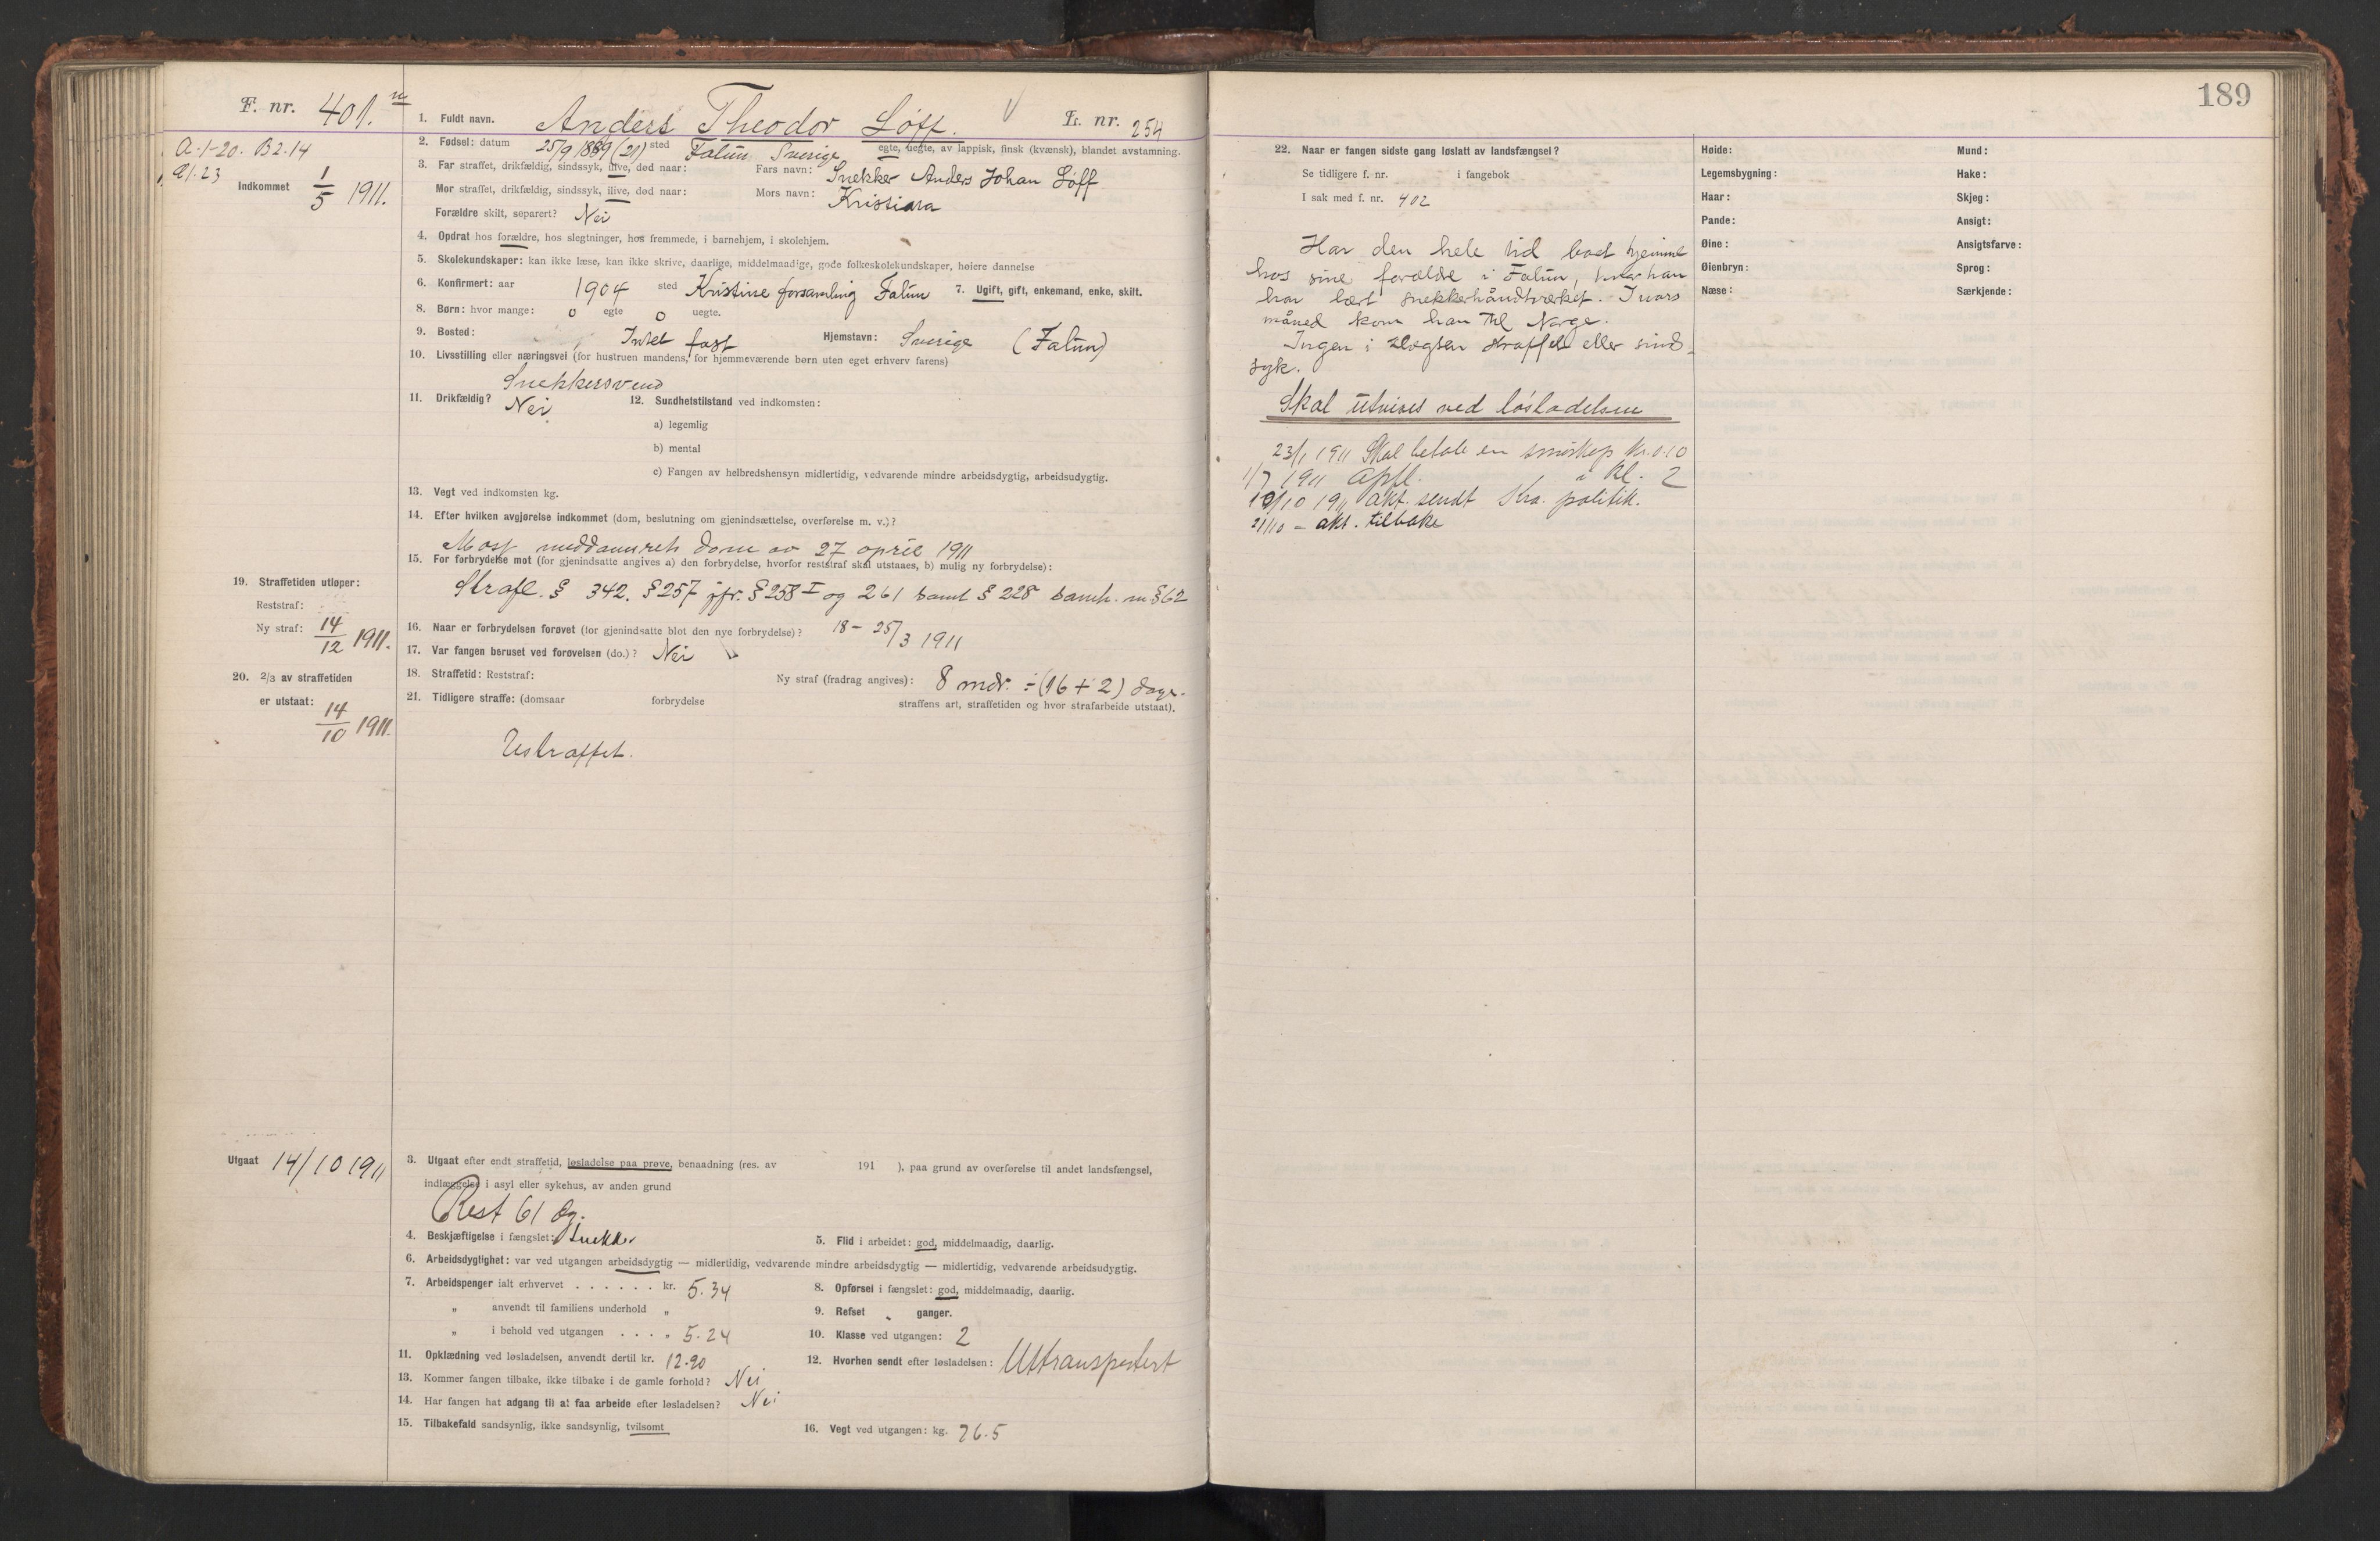 F. nr. 401.
A.1-20. B2.14
A1.23
Indkommet 1/5 1911.
1. Fuldt navn. Anders Theodor Løff. L. nr. 254
2. Fødsel: datum 25/9 1889 (21) sted Falun Sverige egte, uegte, av lappisk, finsk (kvænsk), blandet avstamning.
3. Far straffet, drikfældig, sindssyk, ilive, død naar: Fars navn: Snekker Anders Johan Løff
Mor straffet, drikfældig, sindssyk, ilive, død naar: Mors navn: Kristiana
Forældre skilt, separert? Nei
4. Opdrat hos forældre, hos slegtninger, hos fremmede, i barnehjem, i skolehjem.
5. Skolekundskaper: kan ikke læse, kan ikke skrive, daarlige, middelmaadige, gode folkeskolekundskaper, høiere dannelse
6. Konfirmert: aar 1904 sted Kristine forsamling Falun 7. Ugift, gift, enkemand, enke, skilt.
8. Børn: hvor mange: 0 egte 0 uegte.
9. Bosted: Intet fast Hjemstavn: Sverige (Falun)
10. Livsstilling eller næringsvei (for hustruen mandens, for hjemmeværende børn uten eget erhverv farens)
Snekkersvend
11. Drikfældig? Nei 12. Sundhetstilstand ved indkomsten:
a) legemlig
b) mental
c) Fangen av helbredshensyn midlertidig, vedvarende mindre arbeidsdygtig, arbeidsudygtig.
13. Vegt ved indkomsten kg.
14. Efter hvilken avgjørelse indkommet (dom, beslutning om gjenindsættelse, overførelse m. v.)?
Moss meddomsrets dom av 27 april 1911
15. For forbrydelse mot (for gjenindsatte angives a) den forbrydelse, hvorfor reststraf skal utstaaes, b) mulig ny forbrydelse):
Strafl. § 342. § 257 jfr. § 258 I og 261 samt § 228 samh. m § 62
19. Straffetiden utløper:
Reststraf:
Ny straf: 14/12 1911.
16. Naar er forbrydelsen forøvet (for gjenindsatte blot den nye forbrydelse)? 18 - 25/3 1911
17. Var fangen beruset ved forøvelsen (do.)? Nei
18. Straffetid: Reststraf: Ny straf (fradrag angives): 8 mdr. ÷ (16 + 2) dage.
20. 2/3 av straffetiden
er utstaat: 14/10 1911.
21. Tidligere straffe: (domsaar forbrydelse straffens art, straffetiden og hvor strafarbeide utstaat).
Ustraffet.
Utgaat 14/10 1911
3. Utgaat efter endt straffetid, løsladelse paa prøve, benaadning (res. av 191 ), paa grund av overførelse til andet landsfængsel,
indlæggelse i asyl eller sykehus, av anden grund
Rest 61 dg.
4. Beskjæftigelse i fængslet: Snekker 5. Flid i arbeidet: god, middelmaadig, daarlig.
6. Arbeidsdygtighet: var ved utgangen arbeidsdygtig — midlertidig, vedvarende mindre arbeidsdygtig — midlertidig, vedvarende arbeidsudygtig.
7. Arbeidspenger ialt erhvervet . . . . . . kr. 5.34 8. Opførsel i fængslet: god, middelmaadig, daarlig.
„ anvendt til familiens underhold „ 9. Refset „ ganger.
„ i behold ved utgangen . . . . „ 5.24 10. Klasse ved utgangen: 2
11. Opklædning ved løsladelsen, anvendt dertil kr. 12.90 12. Hvorhen sendt efter løsladelsen: Uttransportert
13. Kommer fangen tilbake, ikke tilbake i de gamle forhold? Nei
14. Har fangen hat adgang til at faa arbeide efter løsladelsen? Nei
15. Tilbakefald sandsynlig, ikke sandsynlig, tvilsomt 16. Vegt ved utgangen: kg. 76.5
189
22. Naar er fangen sidste gang løslatt av landsfængsel?
Se tidligere f. nr. i fangebok
I sak med f. nr. 402
Har den hele tid boet hjemme
hos sine forældre i Falun, hvor han
har lært snekkerhåndtverket. I mars
måned kom han til Norge.
Ingen i slegten straffet eller sind-
syk.
Skal utvises ved løsladelsen
23/1 1911 Skal betale en kr. 0.10
1/7 1911 Opfl. i Kl. 2
10/10 1911 akt. sendt Kra. politik.
21/10 - akt. tilbake
Høide: Mund:
Legemsbygning: Hake:
Haar: Skjeg:
Pande: Ansigt:
Øine: Ansigtsfarve:
Øienbryn: Sprog:
Næse: Særkjende: